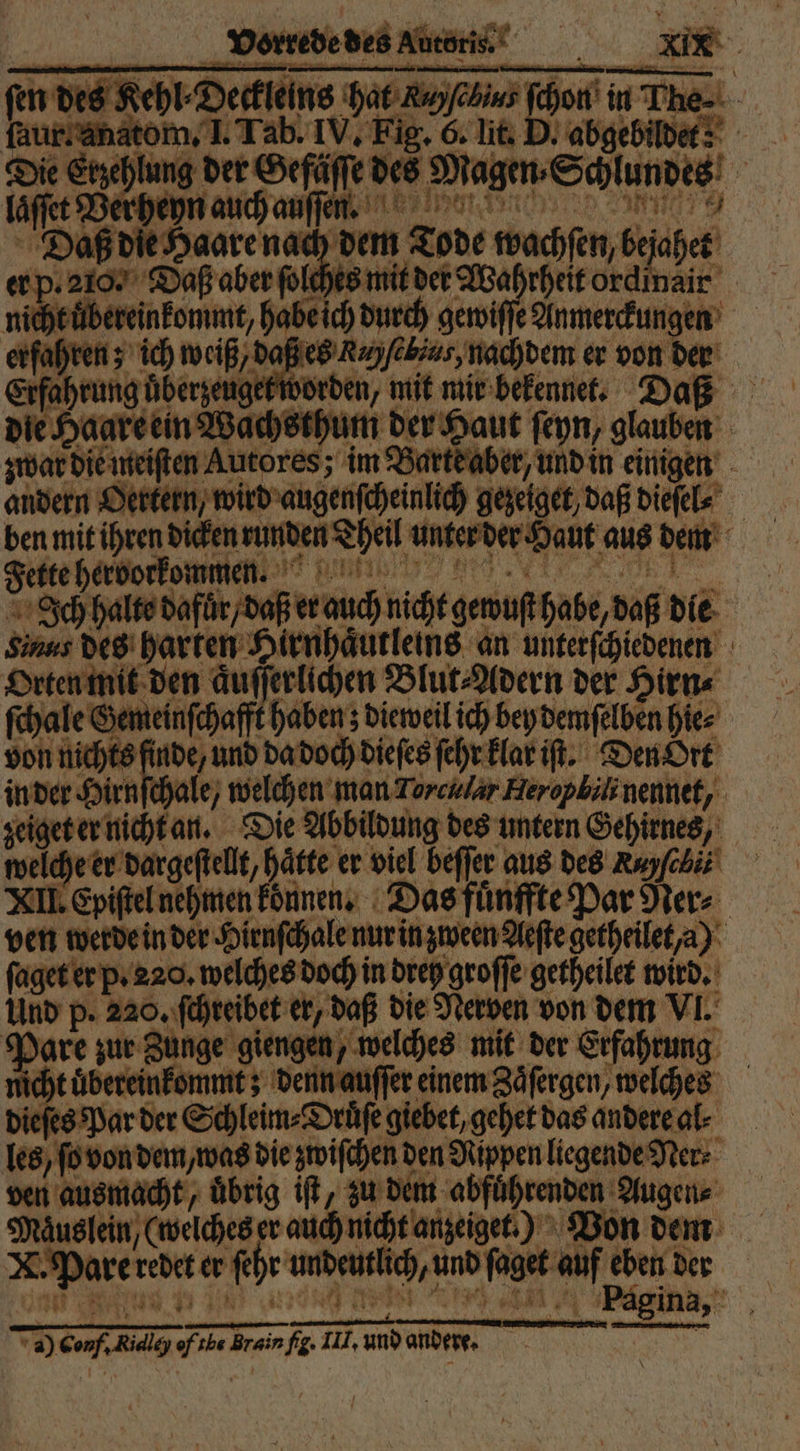 Vorrede des Autoris. XIX
ſen des Kehl-Deckleins hat Ruyſchius ſchon in The-
ſaur. anatom. I. Tab. IV. Fig. 6. lit. D. abgebildet:
Die Erzehlung der Gefäſſe des Magen-Schlundes
läſſet Verheyn auch auſſen.
Daß die Haare nach dem Tode wachſen, bejahet
er p. 210. Daß aber ſolches mit der Wahrheit ordinair
nicht übereinkommt, habe ich durch gewiſſe Anmerckungen
erfahren; ich weiß, daß es Ruyſchius, nachdem er von der
Erfahrung überzeuget worden, mit mir bekennet. Daß
die Haare ein Wachsthum der Haut ſeyn, glauben
zwar die meiſten Autores; im Barte aber, und in einigen
andern Oertern, wird augenſcheinlich gezeiget, daß dieſel-
ben mit ihren dicken runden Theil unter der Haut aus dem
Fette hervorkommen.
Ich halte dafür, daß er auch nicht gewuſt habe, daß die
Sinus des harten Hirnhäutleins an unterſchiedenen
Orten mit den äuſſerlichen Blut-Adern der Hirn-
ſchale Gemeinſchafft haben; dieweil ich bey demſelben hie-
von nichts finde, und da doch dieſes ſehr klar iſt. Den Ort
in der Hirnſchale, welchen man Torcular Herophili nennet,
zeiget er nicht an. Die Abbildung des untern Gehirnes,
welche er dargeſtellt, hätte er viel beſſer aus des Ruyſchii
XII. Epiſtel nehmen können. Das fünffte Par Ner-
ven werde in der Hirnſchale nur in zween Aeſte getheilet, a)
ſaget er p. 220. welches doch in drey groſſe getheilet wird.
Und p. 220. ſchreibet er, daß die Nerven von dem VI.
Pare zur Zunge giengen, welches mit der Erfahrung
nicht übereinkommt; denn auſſer einem Zäſergen, welches
dieſes Par der Schleim-Drüſe giebet, gehet das andere al-
les, ſo von dem, was die zwiſchen den Rippen liegende Ner-
ven ausmacht, übrig iſt, zu dem abführenden Augen-
Mäuslein, (welches er auch nicht anzeiget.) Von dem
X. Pare redet er ſehr undeutlich, und ſaget auf eben der
Pagina,
a) Conf. Ridley of the Brain fig. III. und andere.